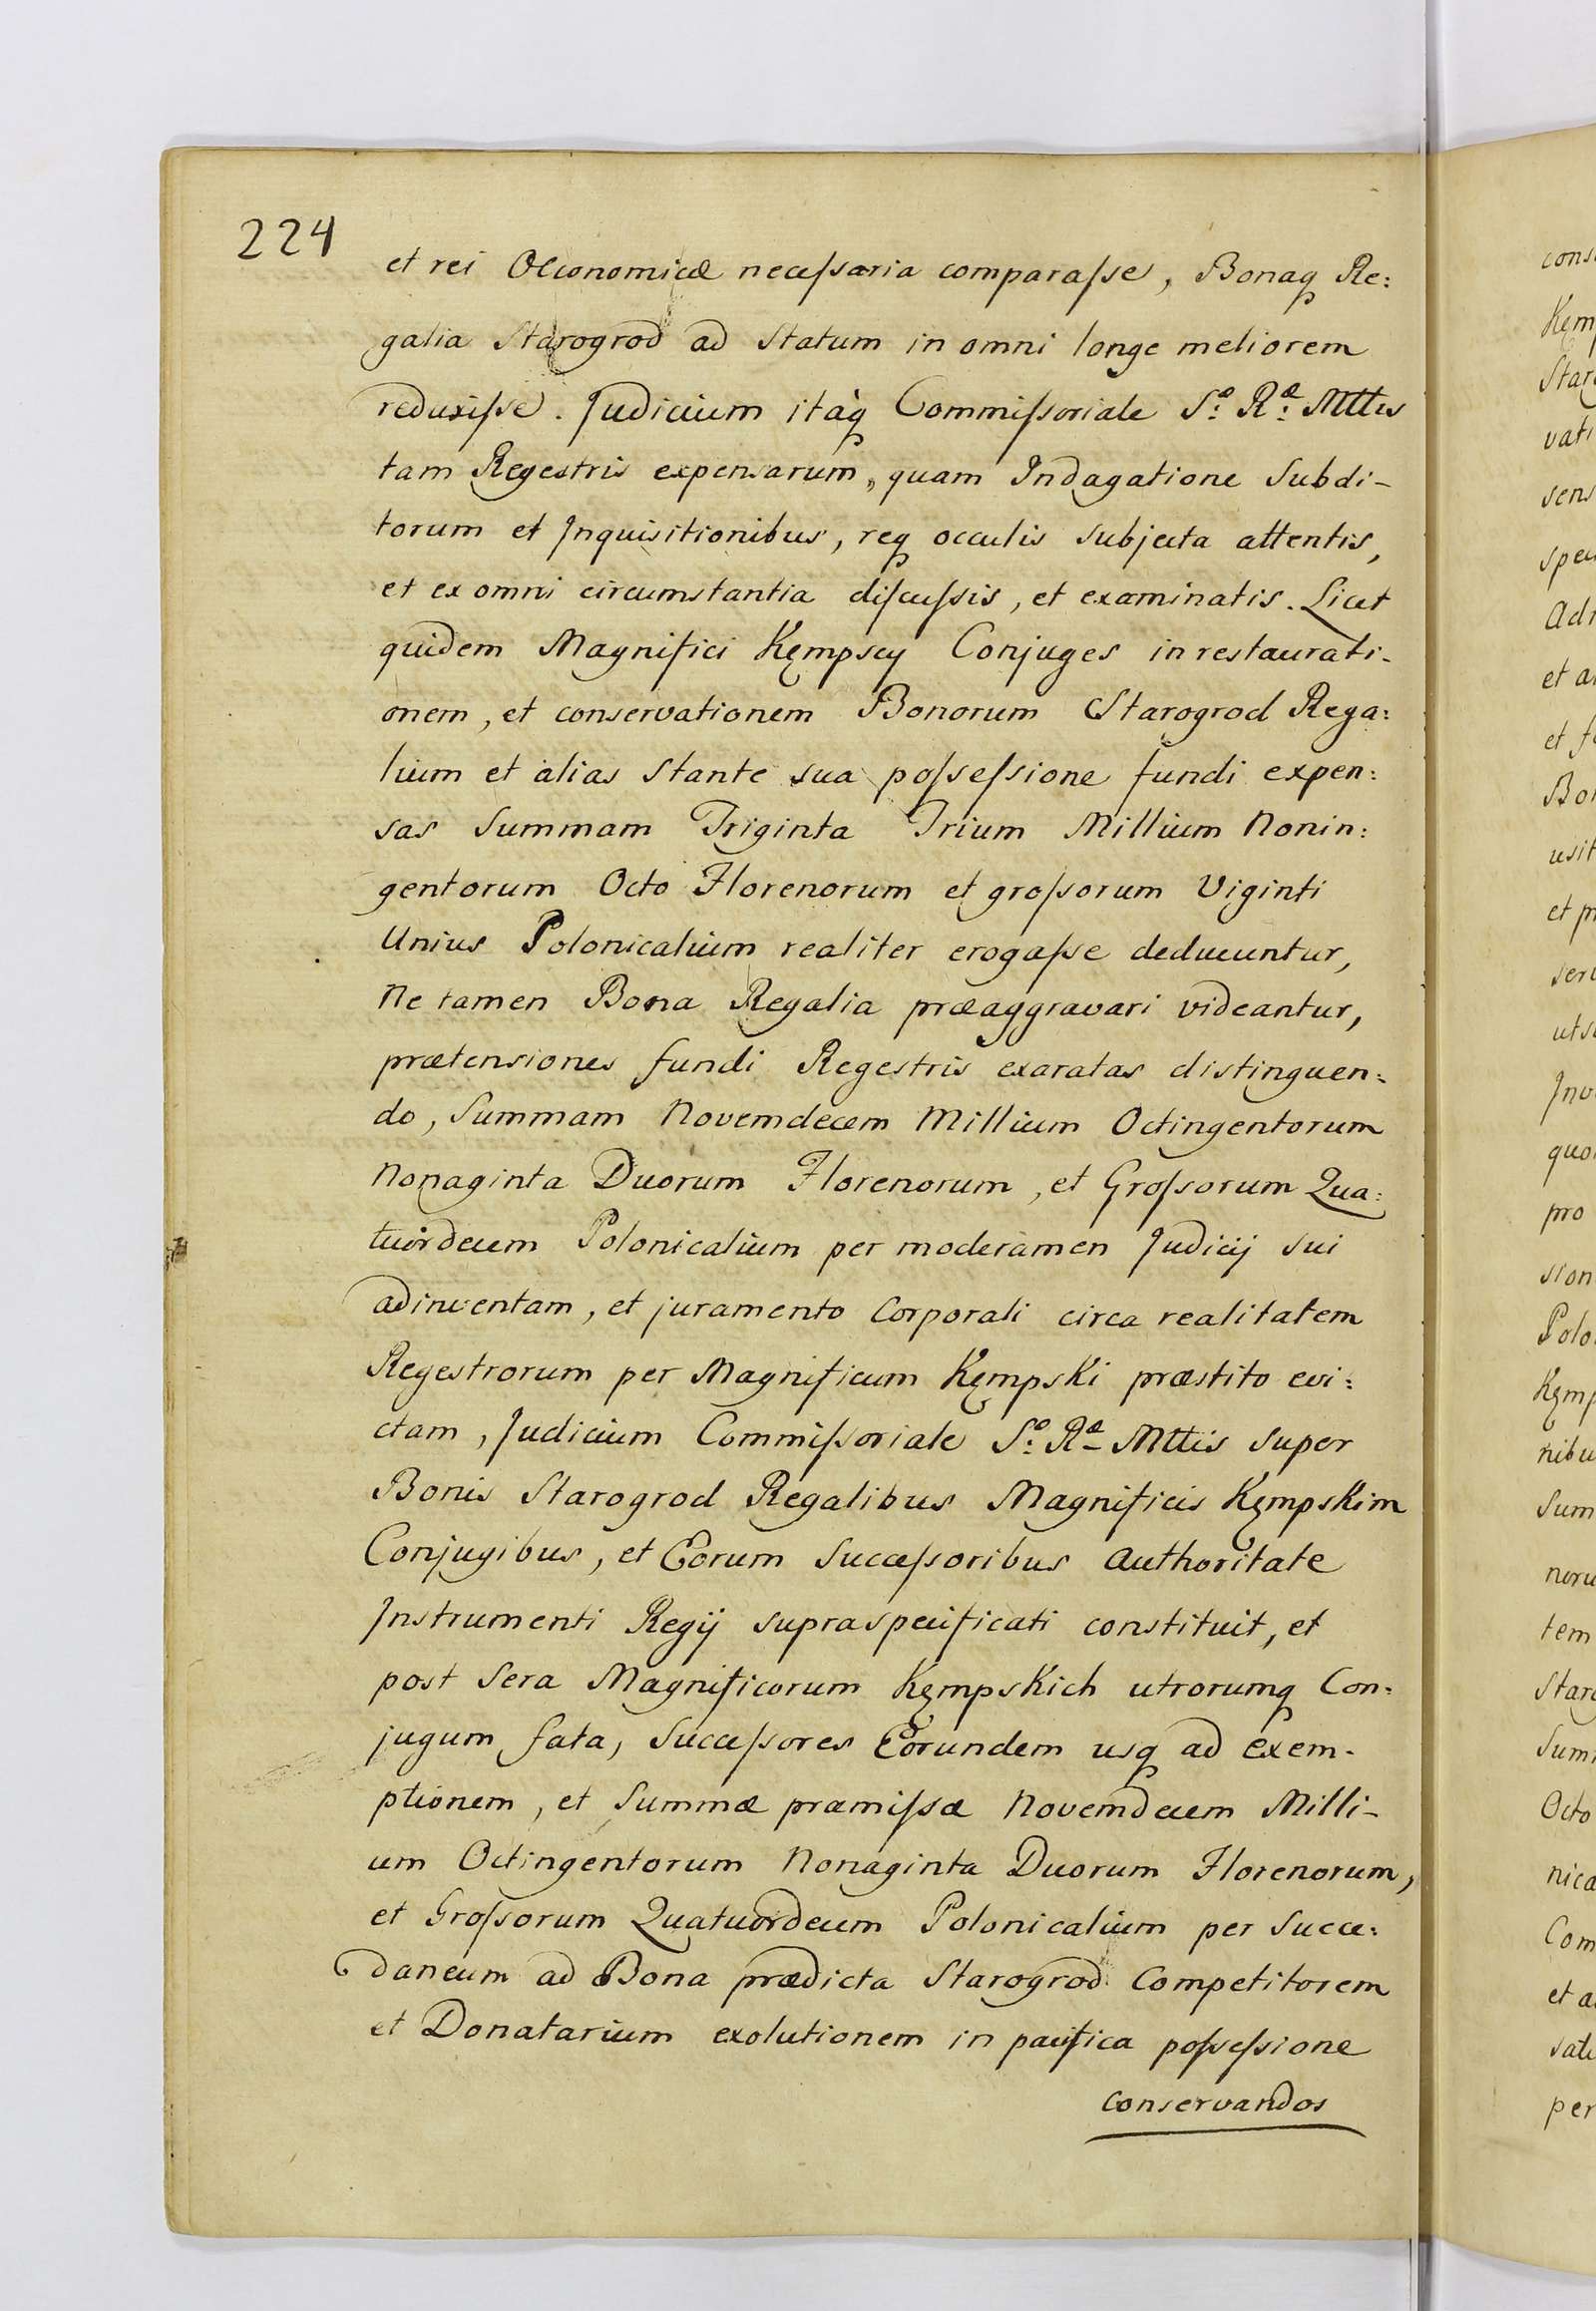 224
et rei Oeconomicæ neceſsaria comparaſse, Bonaq Re:
galia Starogrod ad Statum in omni longe meliorem
reduxiſse. Judicium itaq̀ Commiſsoriale S:æ R:æ Mttis
tam Regestris expensarum, quam Indagatione Subdi-
torum et Inquisitionibus, req occulis subjecta attentis,
et ex omni circumstantia diſcuſsis, et examinatis. Licet
quidem Magnifici Kempscy Conjuges in restaurati-
onem, et conservationem Bonorum Starogrod Rega:
lium et alias Stante sua poſseſsione fundi expen:
sas Summam Triginta Trium Millium Nonin:
gentorum Octo Florenorum et groſsorum Viginti
Unius Polonicalium realiter erogaſse deducuntur,
Ne tamen Bona Regalia præaggravari videantur,
prætensiones fundi Regestris exaratas distinguen:
do, Summam Novemdecem Millium Octingentorum
Nonaginta Duorum Florenorum, et Groſsorum Qua:
tuordecem Polonicalium per moderamen Judicij sui
adinventam, et juramento Corporali circa realitatem
Regestrorum per Magnificum Kępski præstito evi:
ctam, Judicium Commiſsoriale S:æ Ræ Mttis super
Bonis Starogrod Regalibus Magnificis Kęmpskim
Conjugibus, et Eorum Succeſsoribus Authoritate
Instrumenti Regij supraspecificati constituit, et
post Sera Magnificorum Kęmpskich utrorumq Con:
jugum fata, Succeſsores Eorundem usq ad Exem-
ptionem, et Summæ præmiſsæ Novemdecem Milli-
um Octingentorum Nonaginta Duorum Florenorum,
et Groſsorum Quatuordecem Polonicalium per Succe:
daneum ad Bona prædicta Starogrod Competitorem
et Donatarium exolutionem in pacifica poſseſsione
conservandos